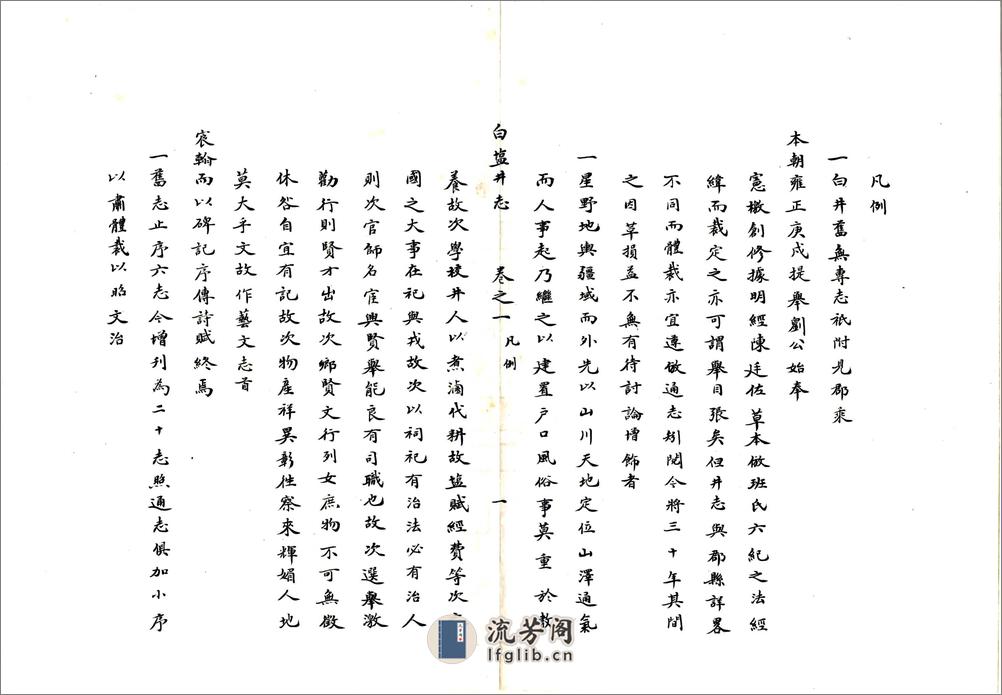 凡例
一白井舊無專志祇附見郡乘
本朝雍正庚戌提舉劉公始奉
憲檄創修據明經陳廷佐草本倣班氏六紀之法經
緯而裁定之亦可謂舉目張矣但井志與郡縣詳畧
不同而體裁亦宜遵倣通志矧閱今將三十年其間
之因革損益不無有待討論增飾者
一星野地輿疆域而外先以山川天地定位山澤通氣
而人事起乃繼之以建置户口風俗事莫重於教
白塩井志 卷之一 凡例 一
養故次學校井人以煮滷代耕故塩賦經費等次之
國之大事在祀與戎故次以祠祀有治法必有治人
則次官師名宦興賢舉能良有司職也故次選舉激
勸行則賢才出故次鄉賢文行列女庶物不可無徵
休咎自宜有記故次物產祥異彰往察來輝媚人地
莫大乎文故作藝文志首
宸翰而以碑記序傳詩賦終焉
一舊志止序六志今增列為二十志照通志俱加小序
以肅體裁以昭文治
流芳阁
lfglib.cn